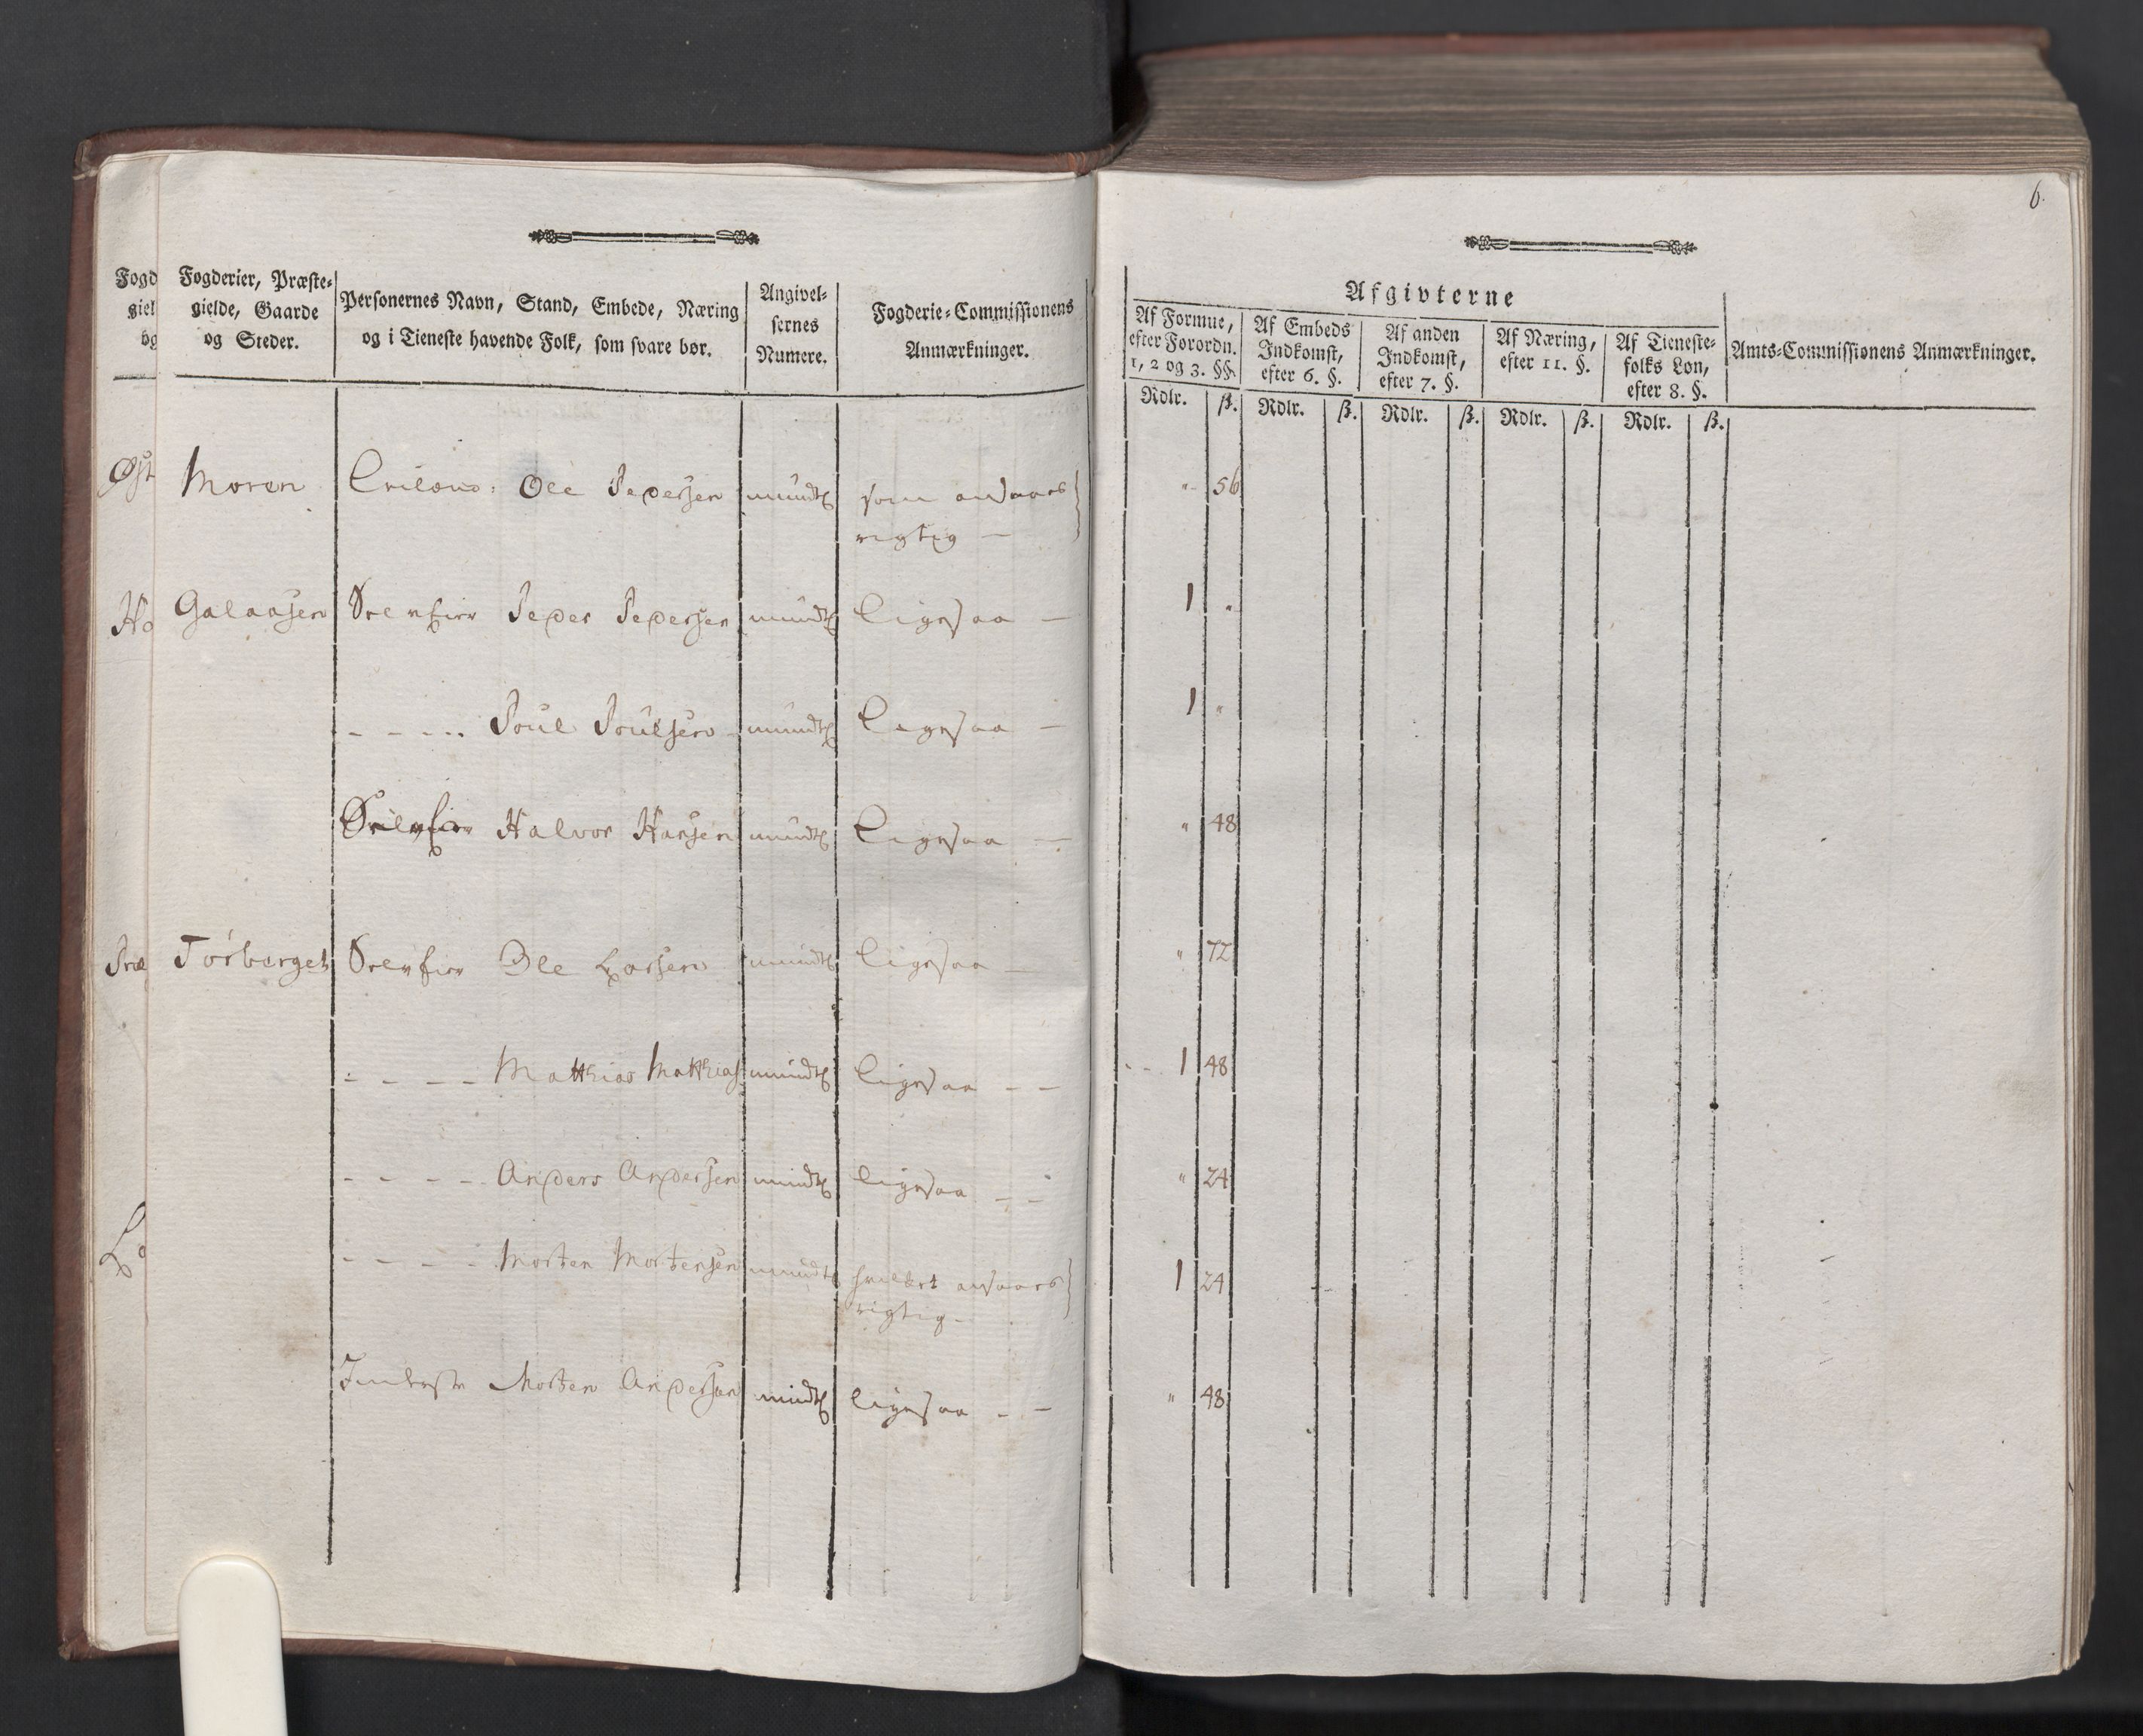 6.
Fogd
giel
og
Fogderier, Præste-
gielde, Gaarde
og Steder.
Personernes Navn, Stand, Embede, Næring
og i Tieneste havende Folk, som svare bør.
Angivel-
sernes
Numere.
Fogderie-Commissionens
Anmærkninger.
Afgivterne
Af Formue,
efter Forordn.
1, 2 og 3. §§.
Af Embeds
Indkomst,
efter 6. §.
Af anden
Indkomst,
efter 7. §.
Af Næring,
efter 11. §.
Af Tieneste-
folks Løn,
efter 8. §.
Amts-Commissionens Anmærkninger.
Rdlr. ß. Rdlr. ß. Rdlr. ß. Rdlr. ß. Rdlr. ß.
Øst
Moren Ole Pedersen mundtl som ansaaes " 56
rigtig —
Ho
Galaasen Peder Pedersen mundtl ligesaa — 1 "
- - - - Poul Poulsen mundtl ligesaa — 1 "
Halvor Hansen mundtl ligesaa — " 48
Præ
Tørberget Ole Larsen mundtl ligesaa — " 72
- - - - Matthias Matthias mundtl ligesaa — — 1 48
- - - - Anders Andersen mundtl ligesaa — — " 24
Lo
- - - - Morten Mortensen mundtl ansaaes 1 24
rigtig —
Inderste Morten Andersen mundtl ligesaa — — " 48